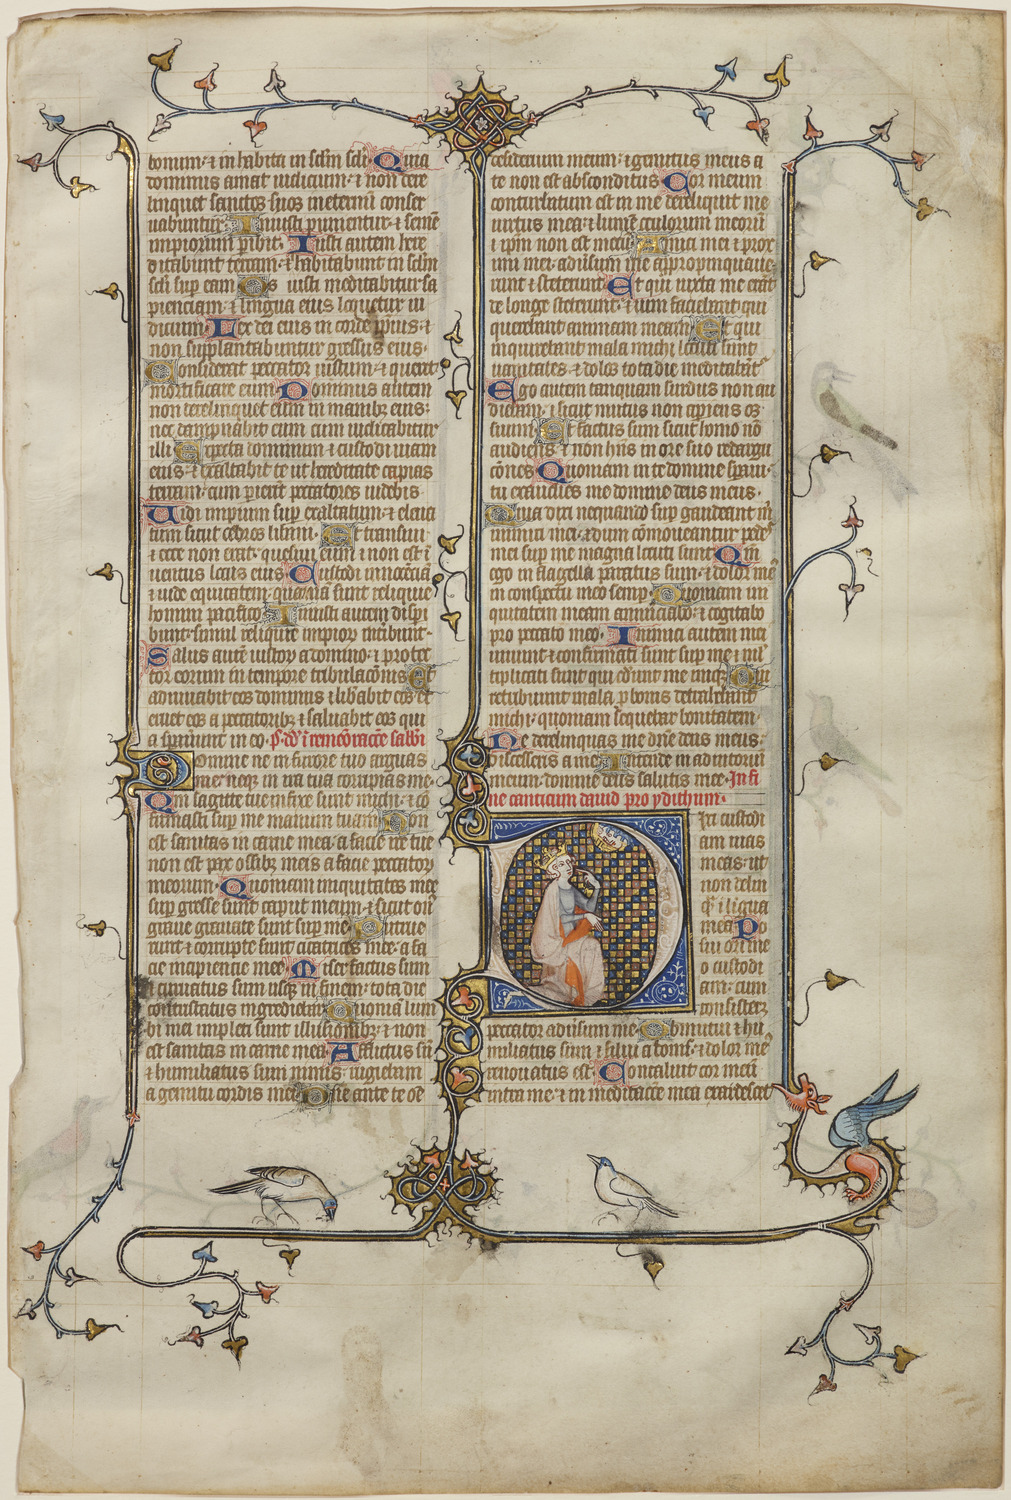 bonum: & inhabita in sclm scli Quia
dominus amat iudicium: & non dere
linquet sanctos suos ineternū conser
uabuntur. Iniusti punientur: & semē
impiorum pibit. Iusti autem here
ditabunt terram: & habitabunt in sclm
scli sup eam Os iusti meditabitur sa
pienciam: & lingua eius loquetur iu
dicium. Lex dei eius in corde ipsius: &
non supplantabuntur gressus eius.
Considerat peccator iustum: & querit
mortificare eum. Dominus autem
non derelinquet eum in manibz eius:
nec dampnabit eum cum iudicabitur
illi Expecta dominum & custodi uiam
eius: & exaltabit te ut hereditate capias
terram: cum pierit peccatores uidebis.
Uidi impium sup exaltatum: & eleua
tum sicut cedros libani. Et transiui
& ecce non erat: quesiui eum & non est ī
uentus locus eius Custodi innocēciā
& uide equitatem: quoniā sunt reliquie
homini pacifico. Iniusti autem dispi
bunt: simul reliquie impior intibunt.
Salus autē iustor a domino: & protec
tor eorum in tempore tribulacōnis Et
adiuuabit eos dominus & libabit eos et
eruet eos a peccatoribz & saluabit eos qui
a sperauerunt in eo. ps. dd ī rememoracōe sabbi
Domine ne in furore tuo arguas
me: neqz in ira tua corripias me.
Qm sagitte tue infixe sunt michi: & cō
firmasti sup me manum tuam Non
est sanitas in carne mea a facie ire tue
non est pax ossibz meis a facie peccator
meorum. Quoniam iniquitates mee
sup gresse sunt caput meum: & sicut on
graue grauate sunt sup me. Putrue
runt & corrupte sunt cicatrices mee: a fa
cie insipiencie mee Miser factus sum
& curuatus sum usqz in finem: tota die
contristatus ingrediebar Quoniam lum
bi mei impleti sunt illusionibz: & non
est sanitas in carne mea. Afflictus sū
& humiliatus sum nimis: rugiebam
a gemitu cordis mei Dñe ante te oē
desiderium meum: & gemitus meus a
te non est absconditus Cor meum
conturbatum est in me dereliquit me
uirtus mea: & lumē oculorum meorū
& ipm non est mecū Amici mei & prox
imi mei: aduīsum me appropinquaue
runt & steterunt. Et qui iuxta me erāt
de longe steterunt: & uim faciebant qui
querebant animam meam. Et qui
inquirebant mala michi locuti sunt
uanitates: & dolos tota die meditabāt
Ego autem tanquam surdus non au
diebam: & sicut mutus non apiens os
suum Et factus sum sicut homo nō
audiens: & non hñs in ore suo redargu
cōnes Quoniam in te domine spaui:
tu exaudies me domine deus meus.
Quia dixi nequando sup gaudeant m
inimici mei: & dum cōmoueantur pede
mei sup me magna locuti sunt. Qm
ego in flagella paratus sum: & dolor mē
in conspectu meo semp. Quoniam ini
quitatem meam annunciabo: & cogitabo
pro peccato meo. Inimici autem mei
uiuunt & confirmati sunt sup me: & mī
tiplicati sunt qui oderunt me iniqz. Qui
retribuunt mala p bonis detrahebant
michi: quoniam sequebar bonitatem.
Ne derelinquas me dñe deus meus:
discesseris a me. Intende in adiutoriū
meum: domine deus salutis mee. In fi
ne canticum dauid pro ydithum.
Dixi custodi
am uias
meas: ut
non delin
q̄ i ligua
mea Po
sui ori me
o custodi
am: cum
consisteret
peccator aduīsum me. Obmutui & hu
miliatus sum & silui a bonis: & dolor me
renouatus est. Concaluit cor meū
intra me: & in meditacōe mea exardescet